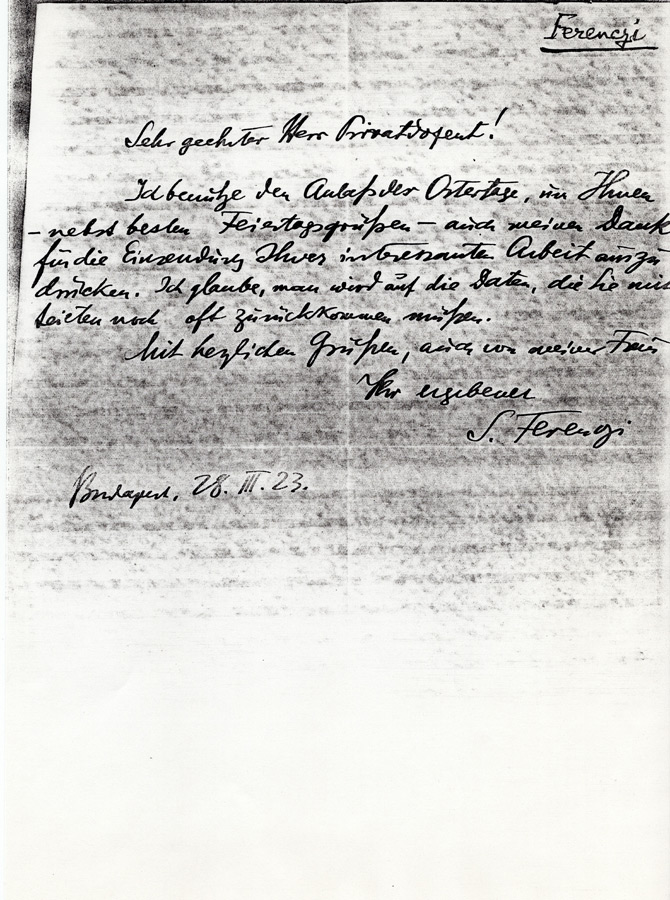 Ferenczi
Sehr geehrter Herr Privatdozent!
Ich benütze den Anlaß der Ostertage, um Ihnen
– nebst besten Feiertagsgrüßen – auch meinen Dank
für die Einsendung Ihrer interessanten Arbeit auszu
drücken. Ich glaube, man wird auf die Daten, die Sie
noch oft zurückkommen müßen.
Mit herzlichen Grüßen, auch von meiner Frau
Ihr ergebener
S. Ferenczi
Budapest, 28. III. 23.